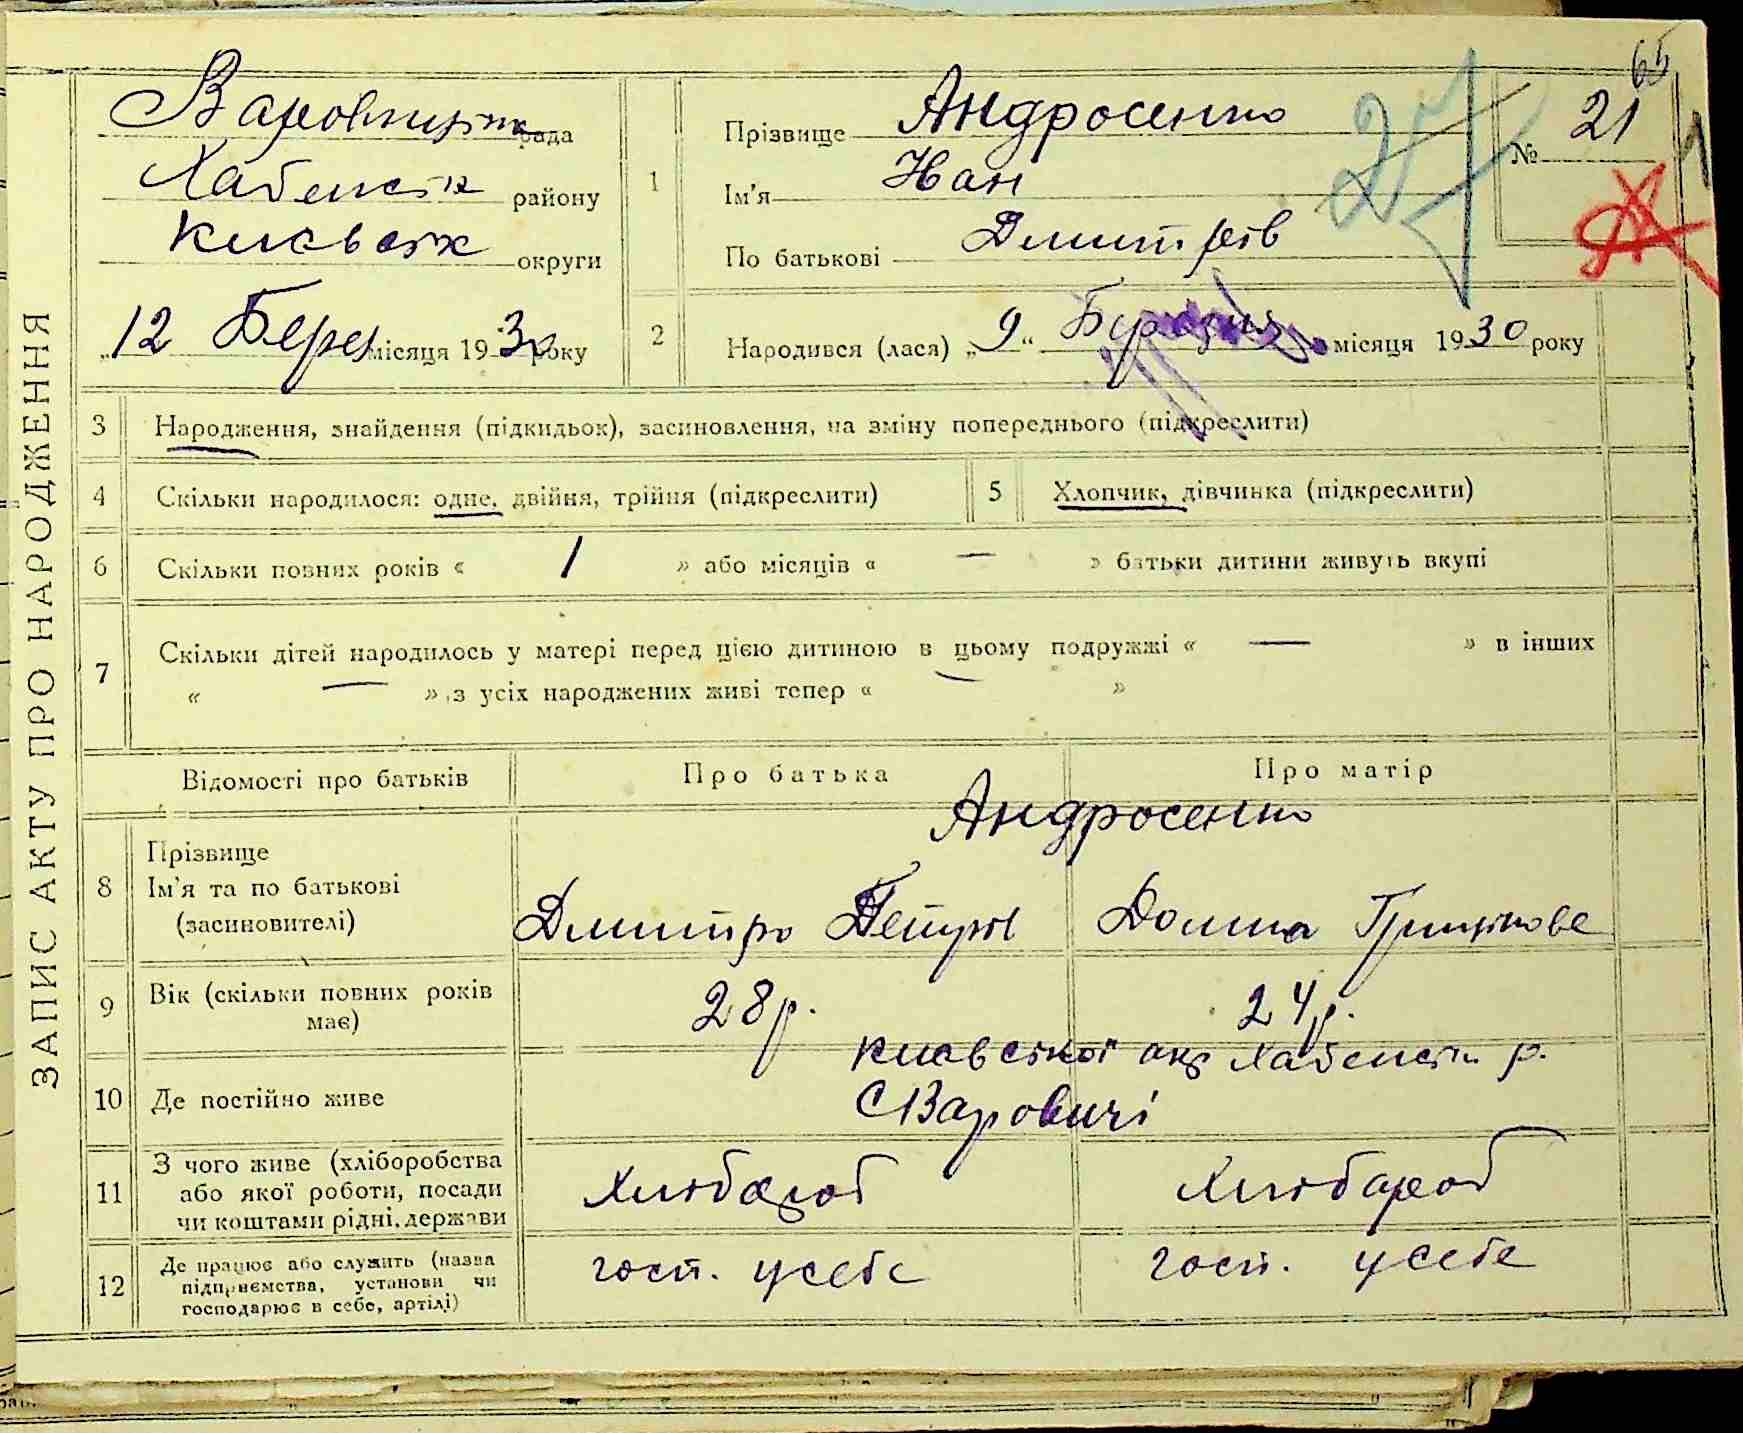 ЗАПИС АКТУ ПРО НАРОДЖЕННЯ
65
Варовицьк рада
Хабенськ району
Київськ округи
„12 Берез місяця 1930 року
1
Прізвище Андросенко
Ім'я Иван
По батькові Дмитрів
27
№ 21
2
Народився (лася) „9“ місяця 1930 року
3 Народження, знайдення (підкидьок), засиновлення, на зміну попереднього (підкреслити)
4 Скільки народилося: одне, двійня, трійня (підкреслити)
5 Хлопчик, дівчинка (підкреслити)
6 Скільки повних років « 1 » або місяців « — » батьки дитини живуть вкупі
7 Скільки дітей народилось у матері перед цією дитиною в цьому подружжі « — » в інших
« — » з усіх народжених живі тепер « — »
Відомості про батьків Про батька Про матір
Андросенко
8 Прізвище
Ім'я та по батькові
(засиновителі)
Дмитро Петров Домна
9 Вік (скільки повних років
має)
28р. 24р.
10 Де постійно живе
Київської окр Хабенськ р.
С Варовичі
11 З чого живе (хліборобства
або якої роботи, посади
чи коштами рідні, держави
Хлібороб Хлібороб
12 Де працює або служить (назва
підприємства, установи чи
господарює в себе, артілі)
госп. усебе госп. усебе